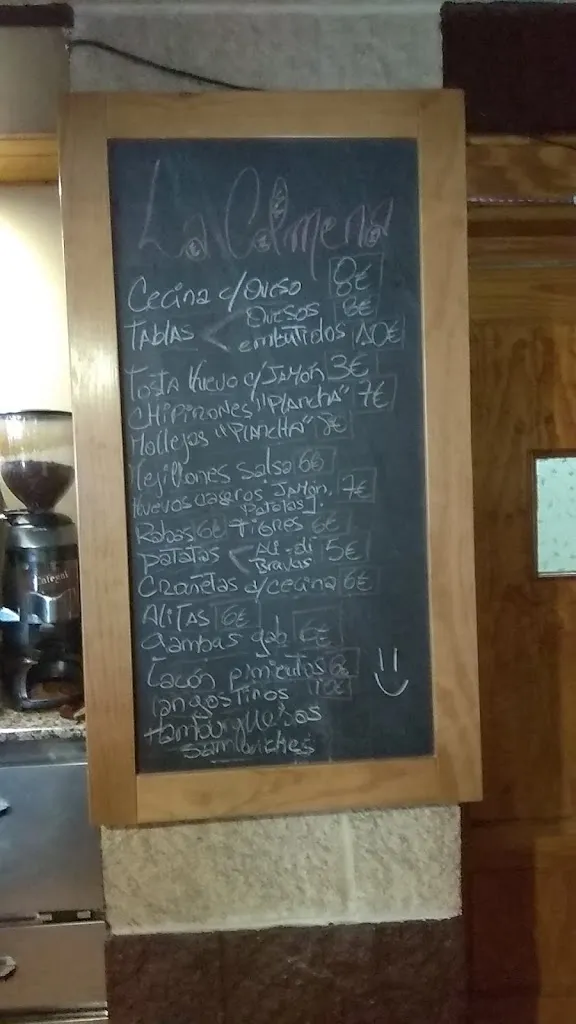 La Colmena
Cecina c/Queso 8€
TABLAS < Quesos 8€
embutidos 10€
Tosta Huevo c/Jamón 3€
CHIPIRONES "PLANCHA" 7€
Mollejas "PLANCHA" 8€
Mejillones salsa 6€
Huevos caseros Jamón, 7€
Patatas].
Rabas 6€ Tigres 6€
patatas < Ali-oli 5€
Bravas
Croquetas c/cecina 6€
ALITAS 6€
Gambas gab. 6€
Lacón pimientos 6€
langostinos 10€
Hamburguesas
Sandwiches